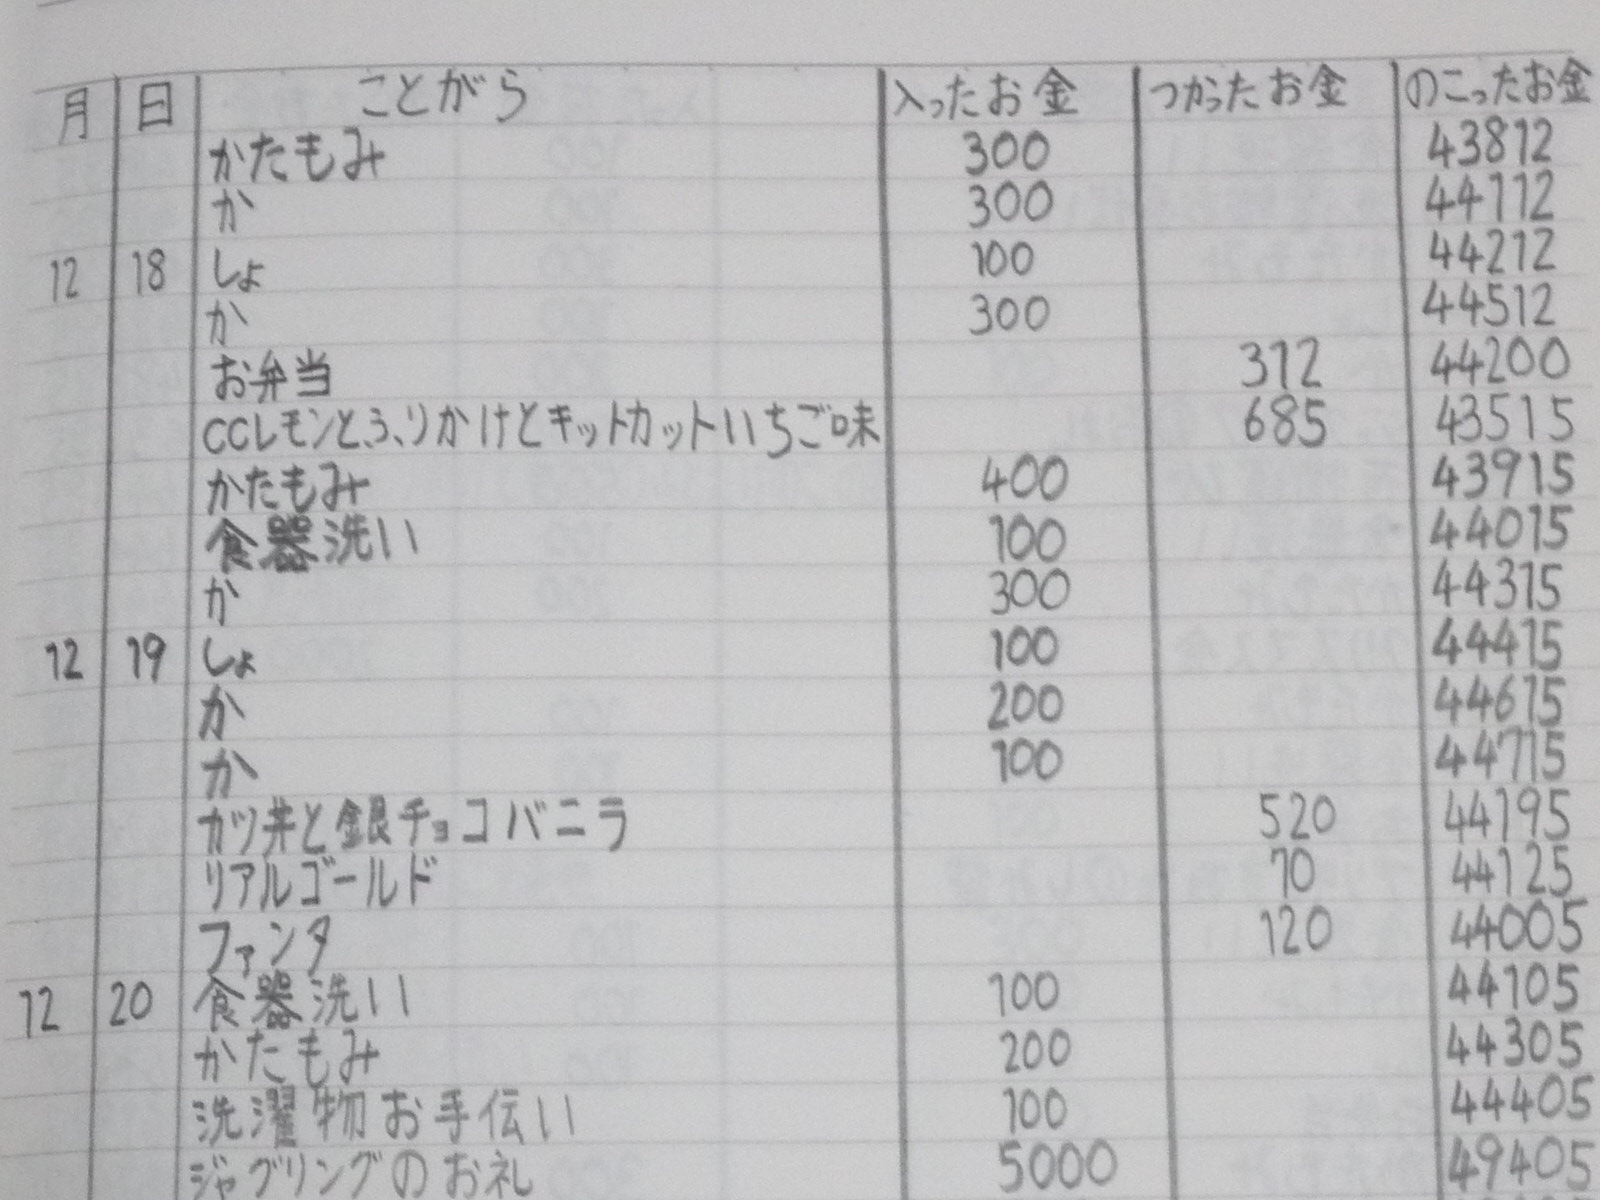 月 日 ことがら 入ったお金 つかったお金 のこったお金
かたもみ 300 43812
か 300 44112
12 18 しょ 100 44212
か 300 44512
お弁当 312 44200
CCレモンとふりかけとキットカットいちご味 685 43515
かたもみ 400 43915
食器洗い 100 44015
か 300 44315
12 19 しょ 100 44415
か 200 44615
か 100 44715
カツ丼と銀チョコバニラ 520 44195
リアルゴールド 70 44125
ファンタ 120 44005
12 20 食器洗い 100 44105
かたもみ 200 44305
洗濯物お手伝い 100 44405
ジャグリングのお礼 5000 49405